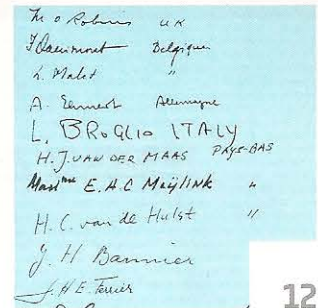 M O Robins UK
J Daerimont Belgique
L. Malet "
A. Ehmert Allemagne
L. BROGLIO ITALY
H. J. VAN DER MAAS PAYS-BAS
E. A. C Meijlink "
H. C. van de Hulst "
J. H Bannier
J. H. E. Ferrier
12